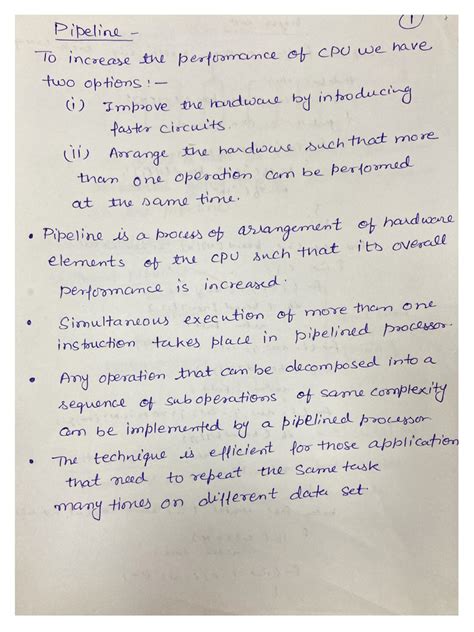 1
Pipeline -
To increase the performance of CPU we have
two options :-
(i) Improve the hardware by introducing
faster circuits
(ii) Arrange the hardware such that more
than one operation can be performed
at the same time.
• Pipeline is a process of arrangement of hardware
elements of the CPU such that its overall
performance is increased.
• Simultaneous execution of more than one
instruction takes place in pipelined processor.
• Any operation that can be decomposed into a
sequence of suboperations of same complexity
can be implemented by a pipelined processor
• The technique is efficient for those application
that need to repeat the same task
many times on different data set.